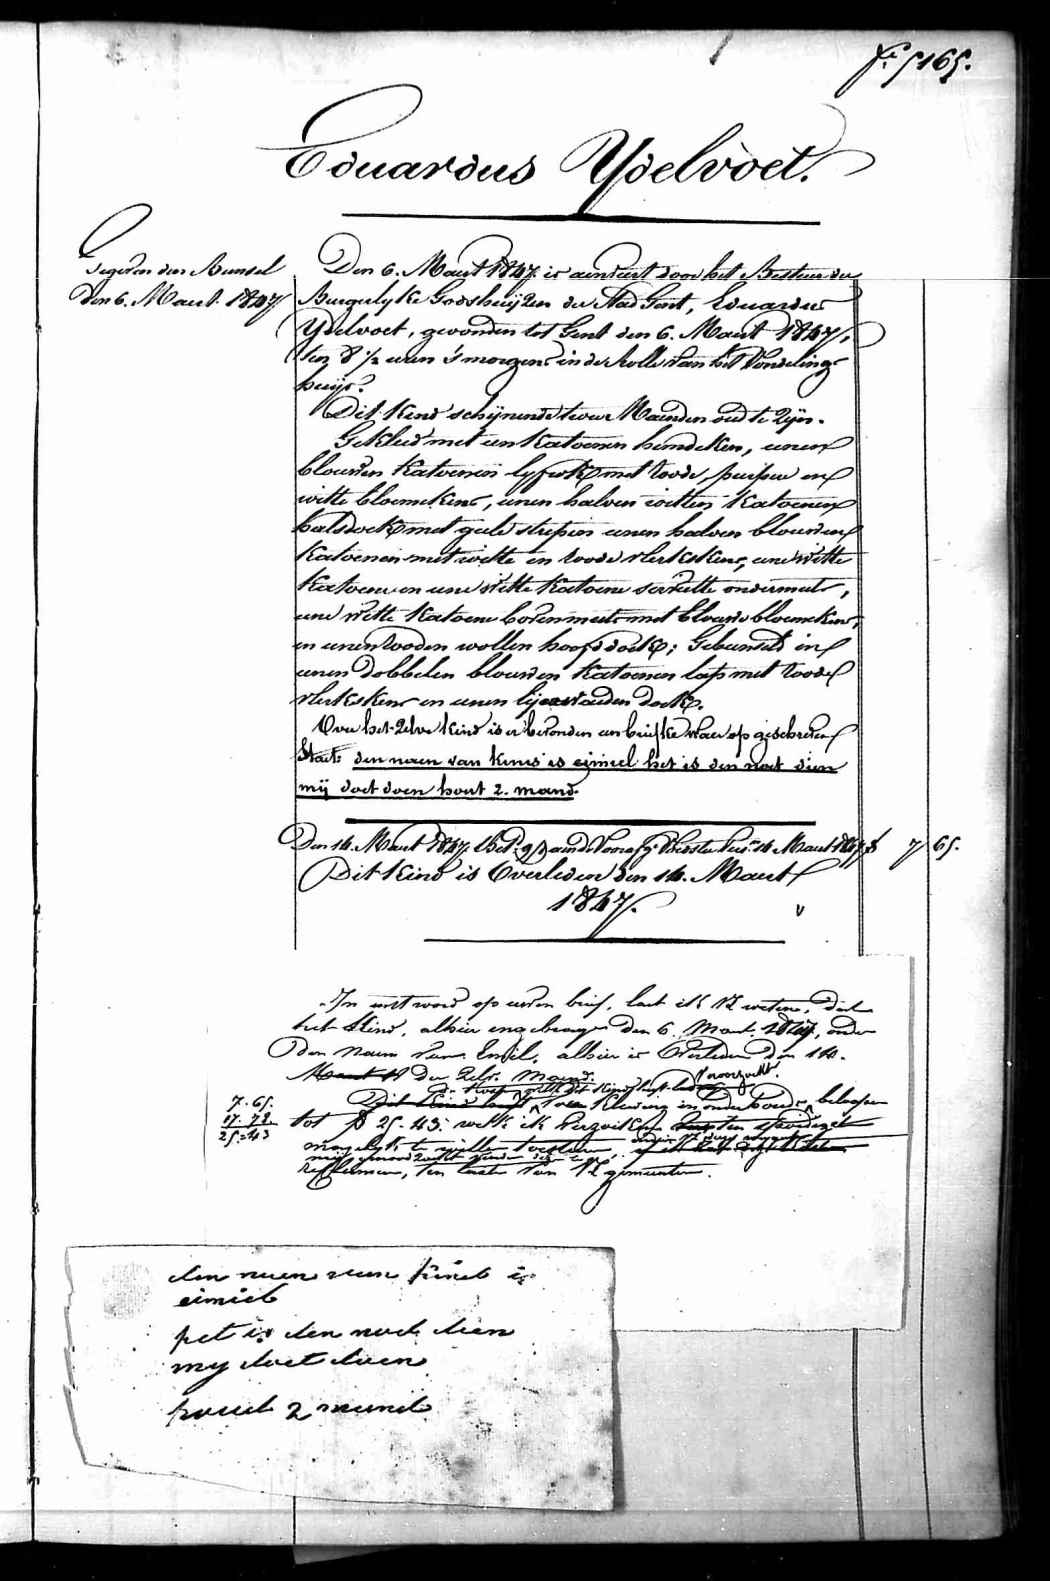 fo 5165.
Eduardus Ydelvoet.
Gegeven den Bunsel
den 6. Maert 1847
Den 6. Maert 1847 is aenveert door het Bestuer der
Burgerlyke Godshuijzen der Stad Gent, Eduardus
Ydelvoet, gevonden tot Gent den 6. Maert 1847,
ten 8 ½ uren 's morgens in de Rolle van het Vondeling-
huijs.
Dit kind schijnende twee Maenden oud te zijn.
Gekleed met een katoenen hemdeken, eenen
blouwen katoenen lyfrok met roode, purper en
witte bloemekens, eenen halven witten katoenen
halsdoek met geele strepen eenen halven blouwen
katoenen met witte en roode vlekskens, eene witte
katoene en eene witte katoene servette ondermuts,
eene witte katoene bovenmuts met blouwe bloemekens,
en eenen rooden wollen hoofddoek; Gebunseld in
eenen dobbelen blouwen katoenen lap met roode
vlekskens en eenen lijnwaeden doek.
Over het zelve kind is er bevonden een briefke waer op geschreven
Staet: den naem van kind is eimiel het is den noet dien
mij doet doen hout 2. mand.
Den 14. Maert 1847 14 Maert 1847 7 65.
Dit kind is Overleden den 14. Maert
1847.
In antword op uwen brief, laet ik U weten, dat
het kind, alhier ingebragt den 6. Maert 1847, onder
den naem van Emil, alhier is Overleden den 14.
Maert der zelv. maend.
Dit kind heeft kleeding en onderhoud beloopen
7. 65.
17. 78
25=43
tot 25. 43: welk ik verzoek
mogelyk te willen
ten laste van U gemeente.
den naem van kind is
eimiel
het is den noet dien
my doet doen
houet 2 maend